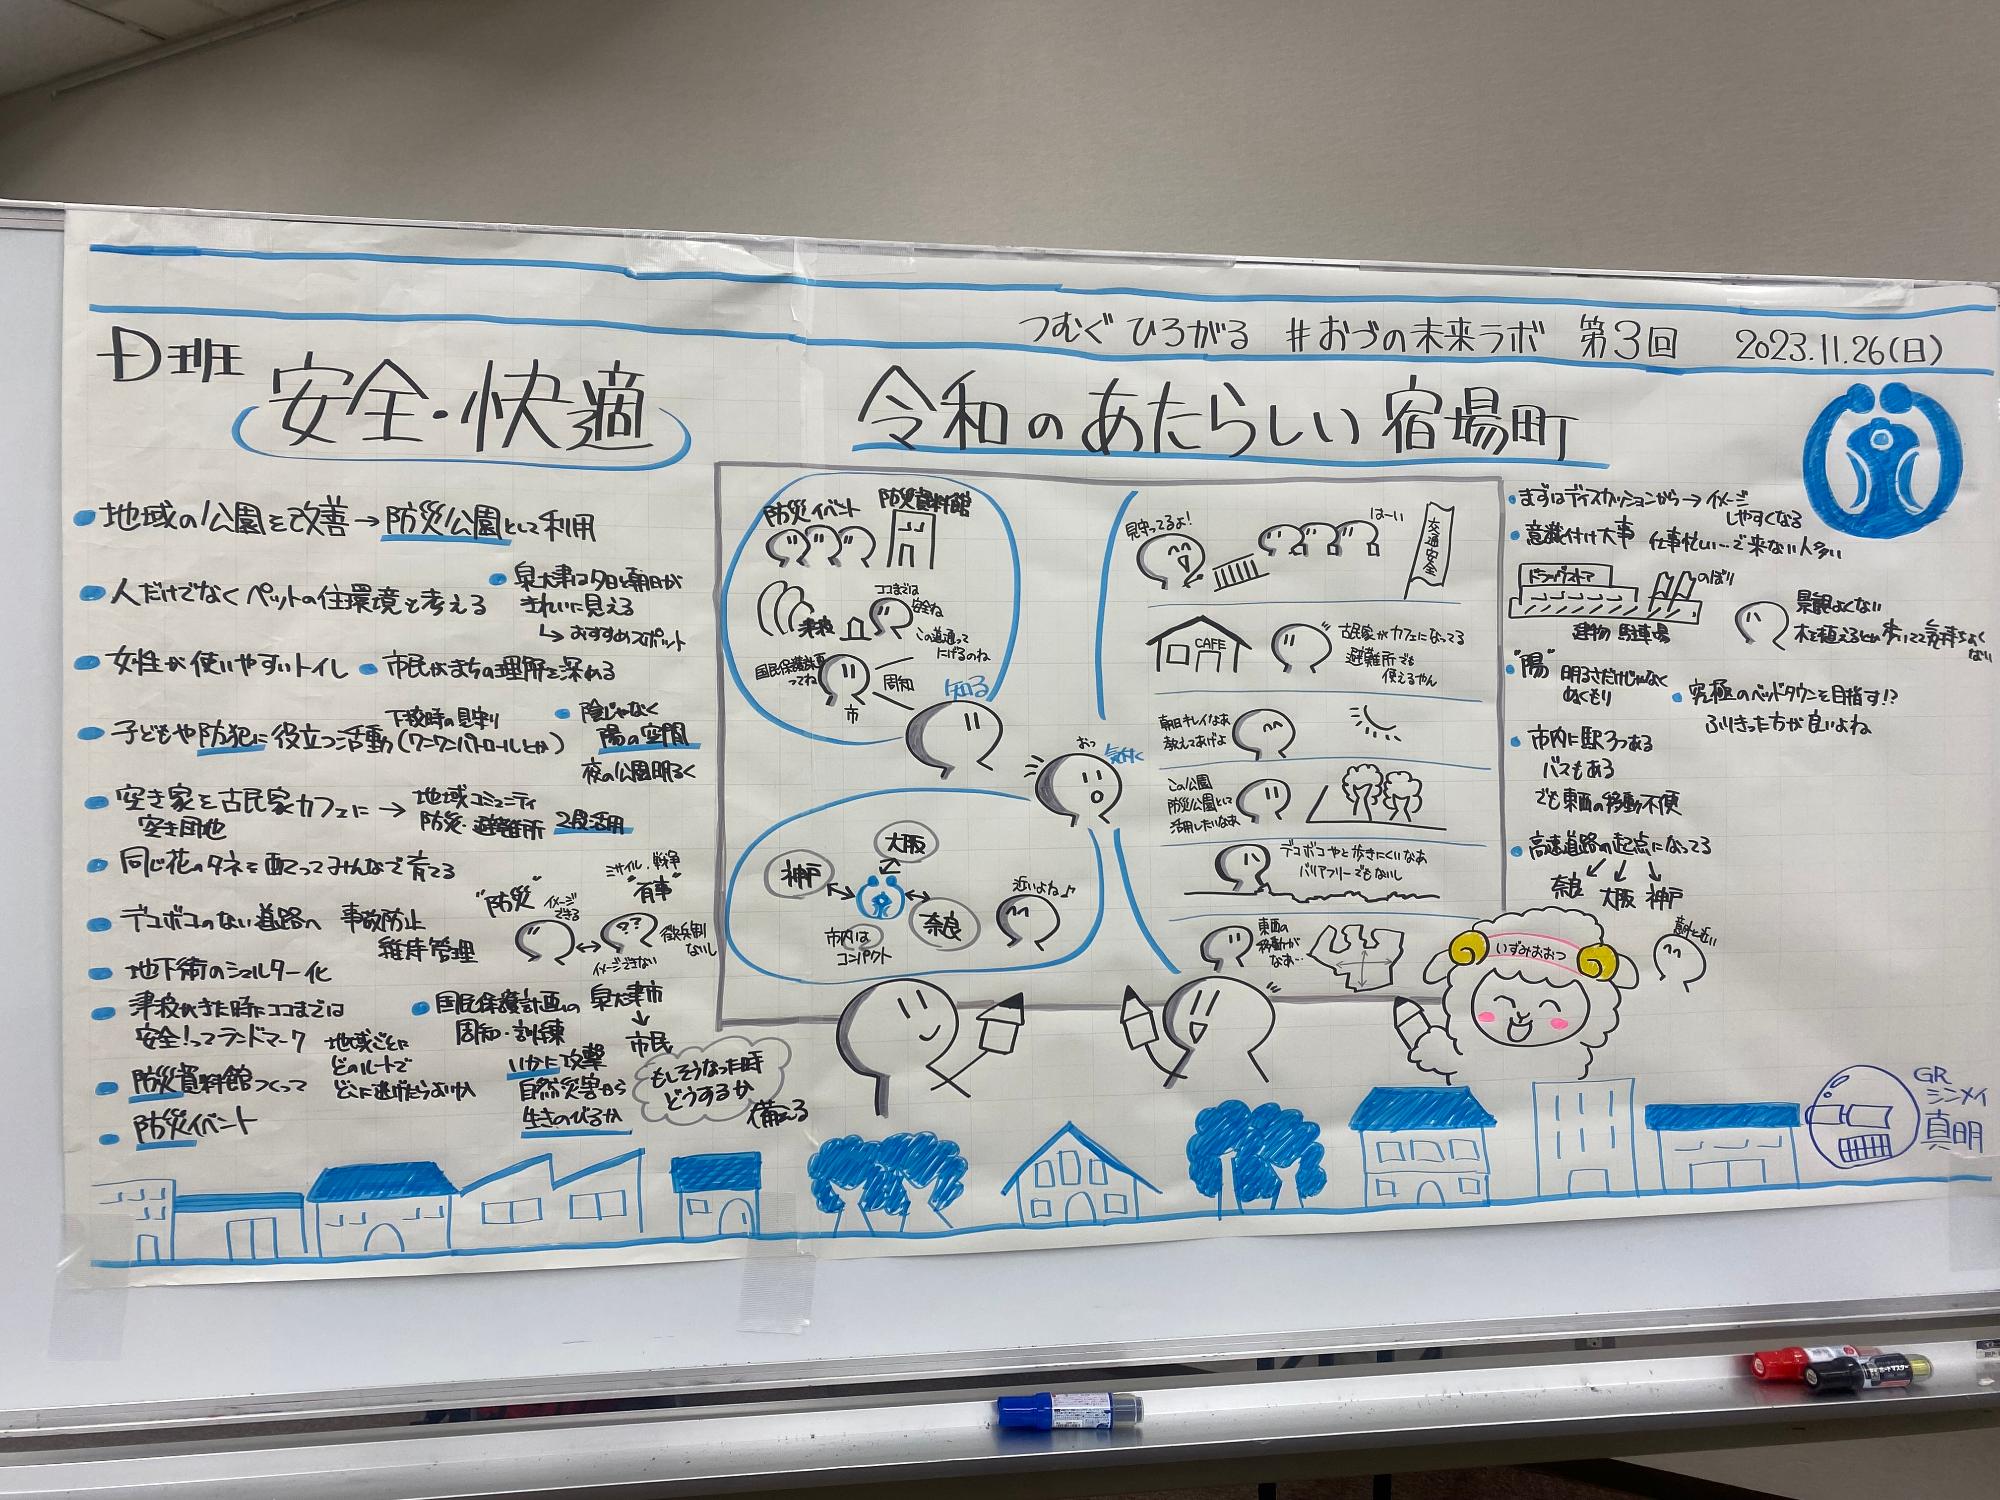 つむぐ ひろがる #おづの未来ラボ 第3回 2023.11.26(日)
D班
安全・快適
令和のあたらしい宿場町
地域の公園を改善→防災公園として利用
人だけでなくペットの住環境を考える
泉大津は夕日と朝日が
きれいに見える
↳おすすめスポット
女性が使いやすいトイレ
市民がまちの理解を深める
子どもや防犯に役立つ活動(ワンワンパトロールとか)
下校時の見守り
陰じゃなく
陽の空間
夜の公園明るく
空き家を古民家カフェに→
空き団地
地域コミュニティ
防災・避難所 2段活用
同じ花のタネを配ってみんなで育てる
デコボコのない道路へ 事故防止
維持管理
"防災"
イメージできる
ミサイル・戦争
"有事"
??
イメージできない
徴兵制
ないし
地下街のシェルター化
津波がきた時にココまでは
安全!ってランドマーク
地域ごとに
どのルートで
どこに逃げたらよいか
国民保護計画の
周知・訓練
泉大津市
↓
市民
いかに攻撃
自然災害から
生きのびるか
もしそうなった時
どうするか
備える
防災資料館つくって
防災イベント
防災イベント
防災資料館
津波
ココまでは
安全ね
この道通って
にげるのね
国民保護計画
ってね
周知
市
知る
おっ
気付く
大阪
神戸
奈良
市内は
コンパクト
近いよね♪
見守ってるよ!
はーい
交通安全
CAFE
古民家がカフェになってる
避難所でも
使えるやん
朝日キレイなあ
教えてあげよ
この公園
防災公園として
活用したいなあ
デコボコやと歩きにくいなあ
バリアフリーでもないし
東西の
移動が
なぁ…
まずはディスカッションから→イメージ
しやすくなる
意識付け大事 仕事忙しい…で来ない人多い
ドラッグストア
のぼり
建物 駐車場
景観よくない
木を植えるとか歩いてて気持ちよく
ない
"陽" 明るさだけじゃなく
ぬくもり
究極のベッドタウンを目指す!?
ふりきった方が良いよね
市内に駅3つある
バスもある
でも東西の移動不便
高速道路の起点になってる
奈良 大阪 神戸
意外と近い
いずみおおつ
GR
シンメイ
真明